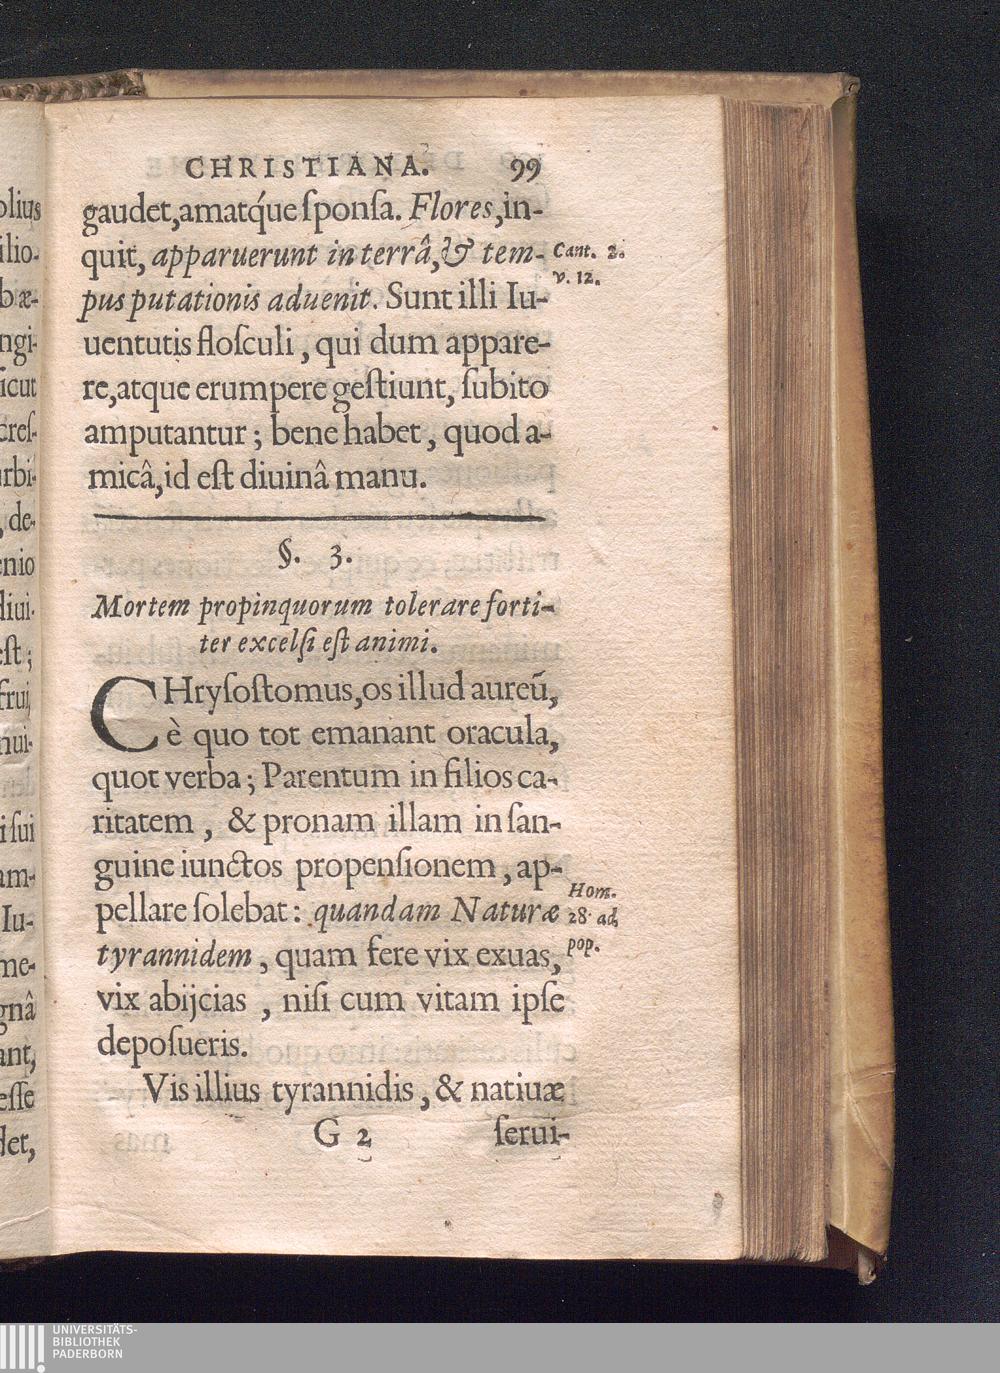 CHRISTIANA. 99
gaudet,amatq́ue ſponſa. Flores,in-
quit, apparuerunt in terrâ, & tem-
Cant. 2.
v. 12.
pus putationis aduenit. Sunt illi Iu-
uentutis floſculi, qui dum appare-
re,atque erumpere geſtiunt, ſubito
amputantur; bene habet, quod a-
micâ,id eſt diuinâ manu.
§. 3.
Mortem propinquorum tolerare forti-
ter excelſi eſt animi.
CHryſoſtomus,os illud aureū,
è quo tot emanant oracula,
quot verba; Parentum in filios ca-
ritatem, & pronam illam in ſan-
guine iunctos propenſionem, ap-
pellare ſolebat: quandam Naturæ
Hom.
28. ad
pop.
tyrannidem, quam fere vix exuas,
vix abijcias, niſi cum vitam ipſe
depoſueris.
Vis illius tyrannidis, & natiuæ
G 2 ſerui-
UNIVERSITÄTS-
BIBLIOTHEK
PADERBORN